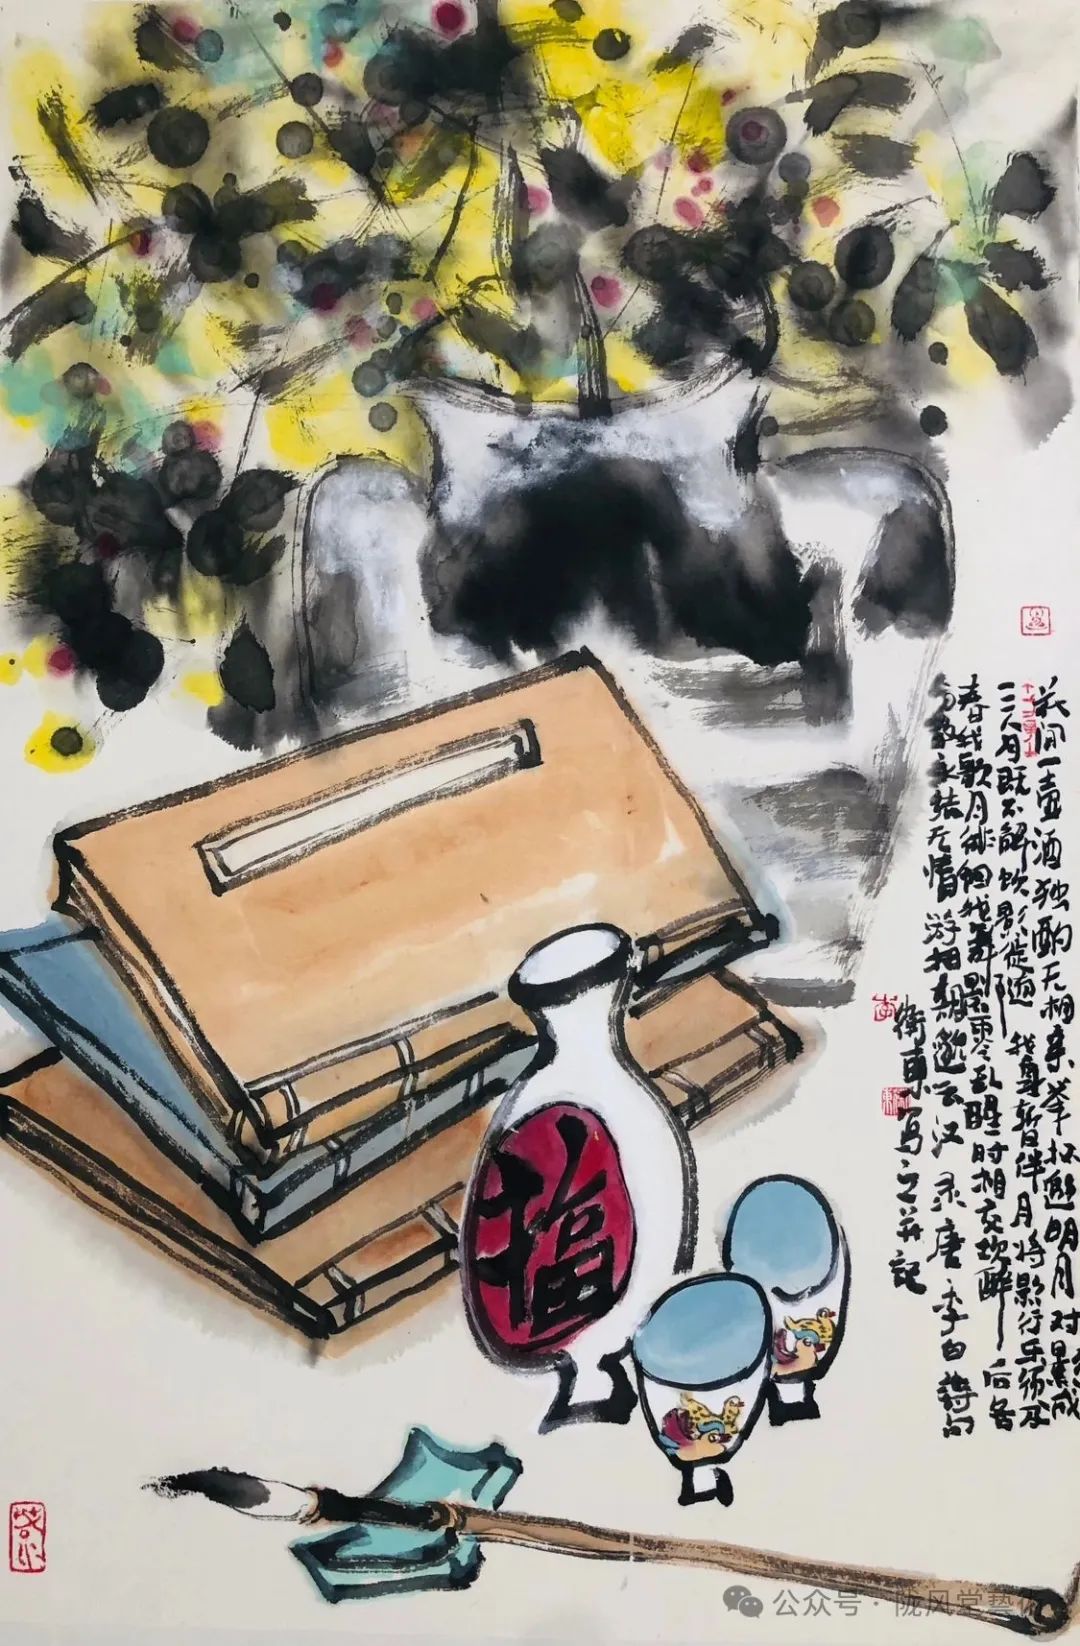 花间一壶酒独酌无相亲举杯邀明月对影成
三人月既不解饮影徒随我身暂伴月将影行乐须及
春我歌月徘徊我舞影零乱醒时相交欢醉后各
分散永结无情游相期邈云汉录唐李白诗句
衛東写之并記
福
公众号·陇风堂藝